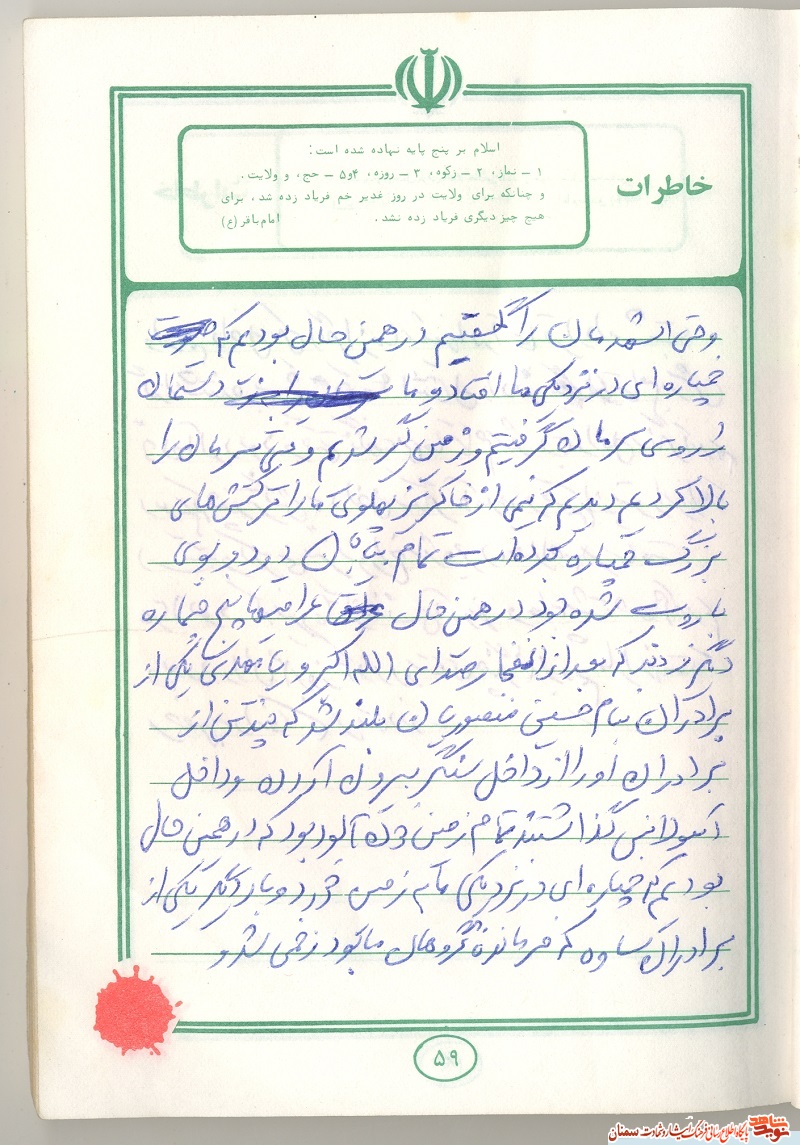 خاطرات
اسلام بر پنج پایه نهاده شده است:
۱ - نماز، ۲ - زکوه، ۳ - روزه، ۴و۵ - حج، و ولایت.
و چنانکه برای ولایت در روز غدیر خم فریاد زده شد، برای
هیچ چیز دیگری فریاد زده نشد. امام باقر (ع)
وقتی اشهدمان را گفتیم در همین حال بودیم که
خمپاره ای در نزدیکی ما افتاد و ما دستمان
را روی سرمان گرفتیم و زمین گیر شدیم وقتی سرمان را
بالا کردیم دیدیم که نیمی از خاکریز پهلوی ما را ترکش های
بزرگ خمپاره برده است تمام دود و بوی
باروت شده بود در همین حال عراقیها پنج خمپاره
دیگر زدند که بعد از انفجار صدای الله اکبر و یا مهدی یکی از
برادران بنام حسین منصوریان بلند شد که چند تن از
برادران او را از داخل سنگر بیرون آورده و داخل
آمبولانس گذاشتند تمام زمین آلود بود که در همین حال
بودیم که خمپاره ای در نزدیکی ما به زمین خورد و بار دیگر یکی از
برادران ساوه که فرمانده گروهان ما بود زخمی شد و
۵۹
نوید شاهد
پایگاه اطلاع رسانی فرهنگ ایثار و شهادت سمنان